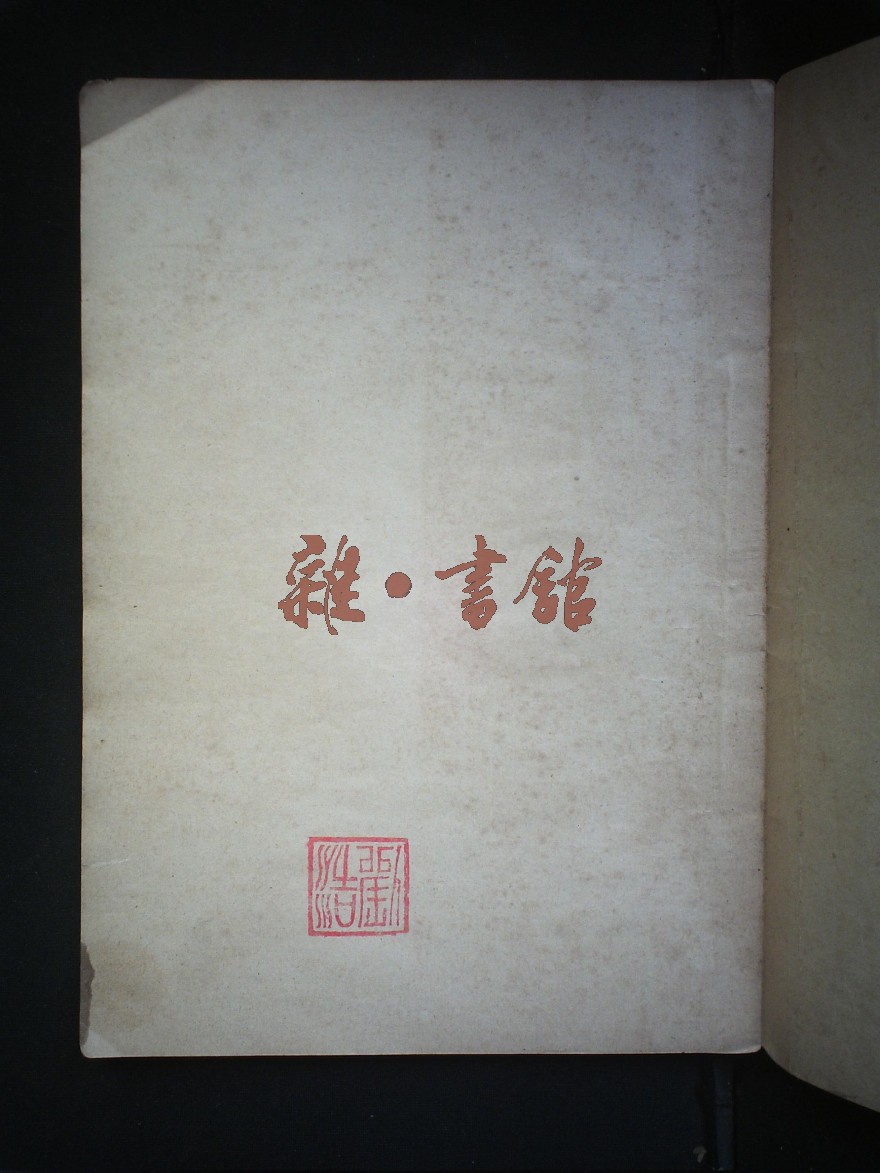 雜·書館
劉浩